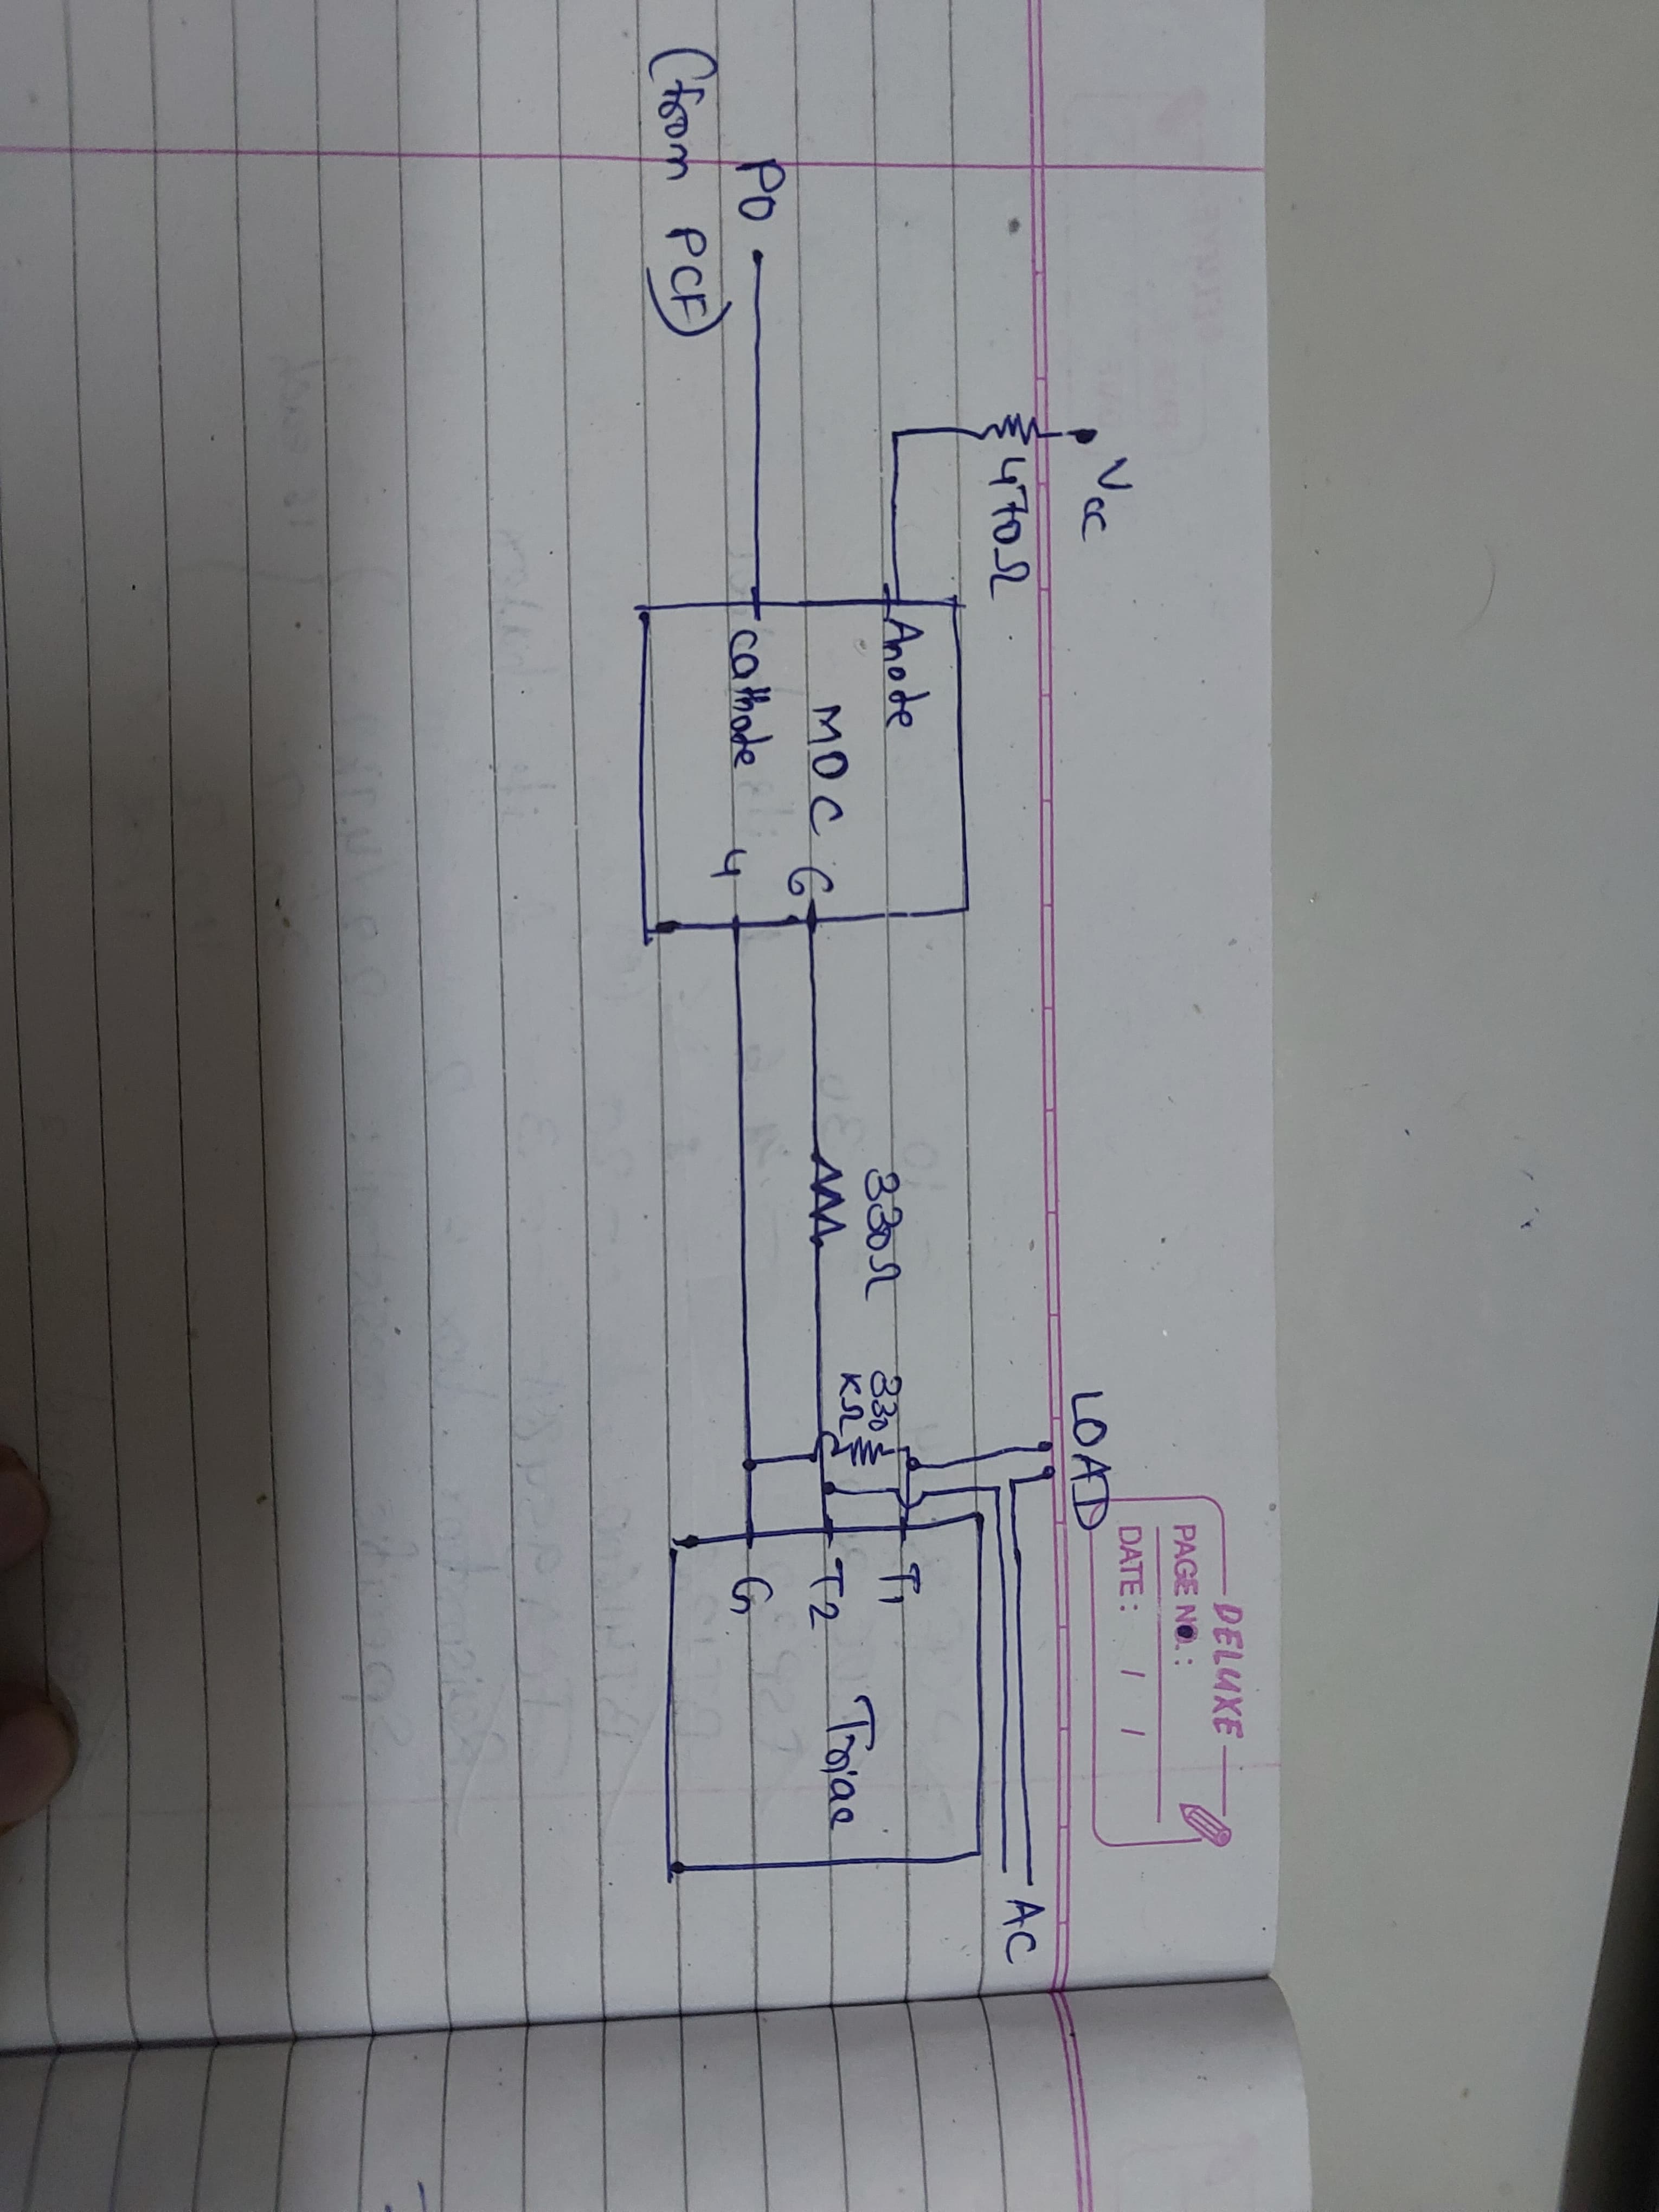 DELUXE
PAGE NO.:
DATE: / /
Vcc
470Ω
LOAD
AC
P0
(from PCF)
Anode
MOC
Cathode
6
4
330Ω
330
KΩ
T1
T2
G
Triac